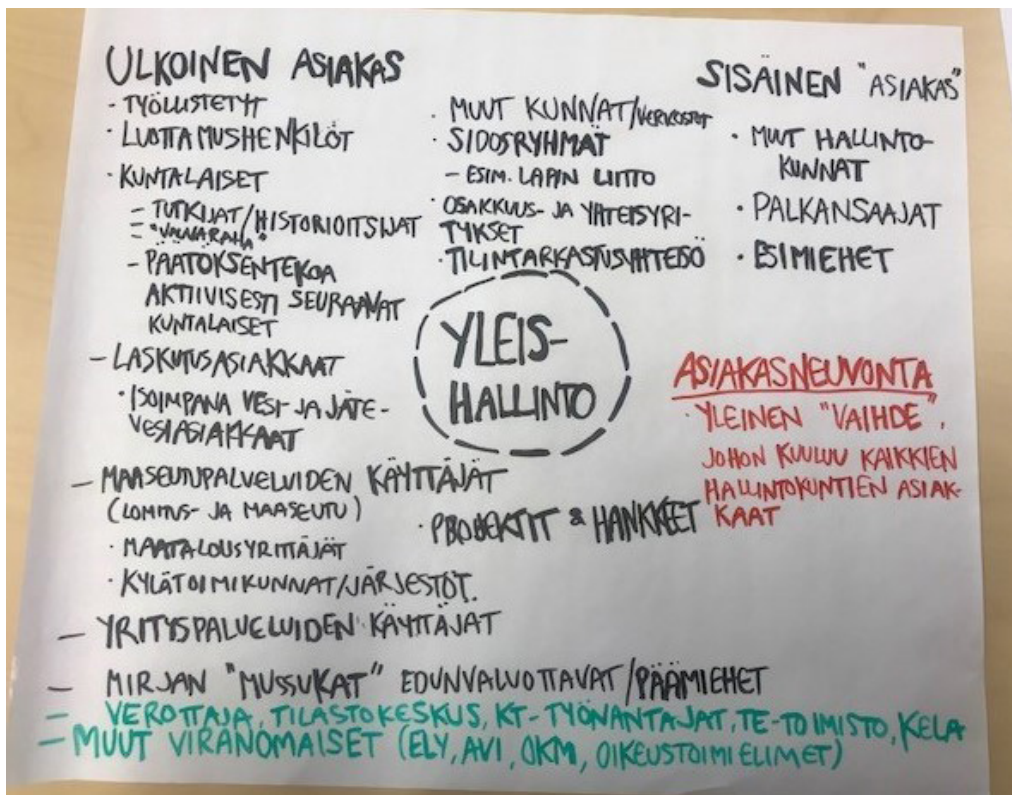 ULKOINEN ASIAKAS
- TYÖLLISTETYT
· LUOTTAMUSHENKILÖT
· KUNTALAISET
- TUTKIJAT/HISTORIOITSIJAT
- "VAUVARAHA"
- PÄÄTÖKSENTEKOA
AKTIIVISESTI SEURAAVAT
KUNTALAISET
- LASKUTUSASIAKKAAT
· ISOIMPANA VESI- JA JÄTE-
VESIASIAKKAAT
- MAASEUTUPALVELUIDEN KÄYTTÄJÄT
(LOMITUS- JA MAASEUTU)
· MAATALOUSYRITTÄJÄT
· KYLÄTOIMIKUNNAT/JÄRJESTÖT.
- YRITYSPALVELUIDEN KÄYTTÄJÄT
- MIRJAN "MUSSUKAT" EDUNVALVOTTAVAT/PÄÄMIEHET
- VEROTTAJA, TILASTOKESKUS, KT-TYÖNANTAJAT, TE-TOIMISTO, KELA
- MUUT VIRANOMAISET (ELY, AVI, OKM, OIKEUSTOIMIELIMET)
· MUUT KUNNAT/VERKOSTOT
· SIDOSRYHMÄT
- ESIM. LAPIN LIITTO
· OSAKKUUS- JA YHTEISYRI-
TYKSET
· TILINTARKASTUSYHTEISÖ
YLEIS-
HALLINTO
· PROJEKTIT & HANKKEET
SISÄINEN "ASIAKAS"
· MUUT HALLINTO-
KUNNAT
· PALKANSAAJAT
· ESIMIEHET
ASIAKASNEUVONTA
· YLEINEN "VAIHDE",
JOHON KUULUU KAIKKIEN
HALLINTOKUNTIEN ASIAK-
KAAT